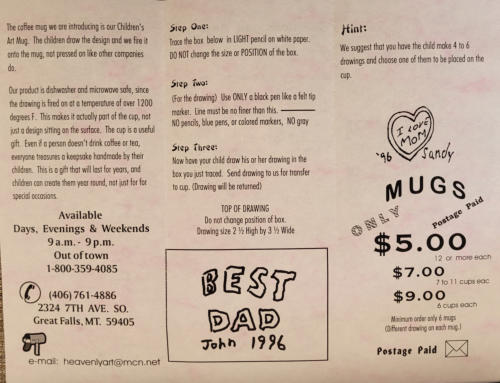 The coffee mug we are introducing is our Children's
Art Mug. The children draw the design and we fire it
onto the mug, not pressed on like other companies
do.
Our product is dishwasher and microwave safe, since
the drawing is fired on at a temperature of over 1200
degrees F. This makes it actually part of the cup, not
just a design sitting on the surface. The cup is a useful
gift. Even if a person doesn't drink coffee or tea,
everyone treasures a keepsake handmade by their
children. This is a gift that will last for years, and
children can create them year round, not just for for
special occasions.
Available
Days, Evenings & Weekends
9 a.m. - 9 p.m.
Out of town
1-800-359-4085
(406)761-4886
2324 7TH AVE. SO.
Great Falls, MT. 59405
e-mail: heavenlyart@mcn.net
Step One:
Trace the box below in LIGHT pencil on white paper.
DO NOT change the size or POSITION of the box.
Step Two:
(For the drawing) Use ONLY a black pen like a felt tip
marker. Line must be no finer than this.
NO pencils, blue pens, or colored markers, NO gray
Step Three:
Now have your child draw his or her drawing in the
box you just traced. Send drawing to us for transfer
to cup. (Drawing will be returned)
TOP OF DRAWING
Do not change position of box.
Drawing size 2 ½ High by 3 ½ Wide
BEST
DAD
John 1996
Hint:
We suggest that you have the child make 4 to 6
drawings and choose one of them to be placed on the
cup.
I LOVE
MOM
'96 Sandy
MUGS
ONLY
Postage Paid
$5.00
12 or more each
$7.00
7 to 11 cups eac
$9.00
6 cups each
Minimum order only 6 mugs
(Different drawing on each mug.)
Postage Paid